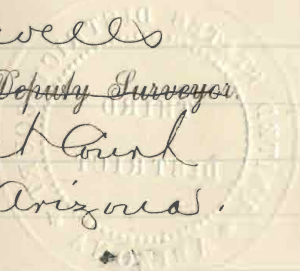 wells
Deputy Surveyor.
t Court
Arizona.